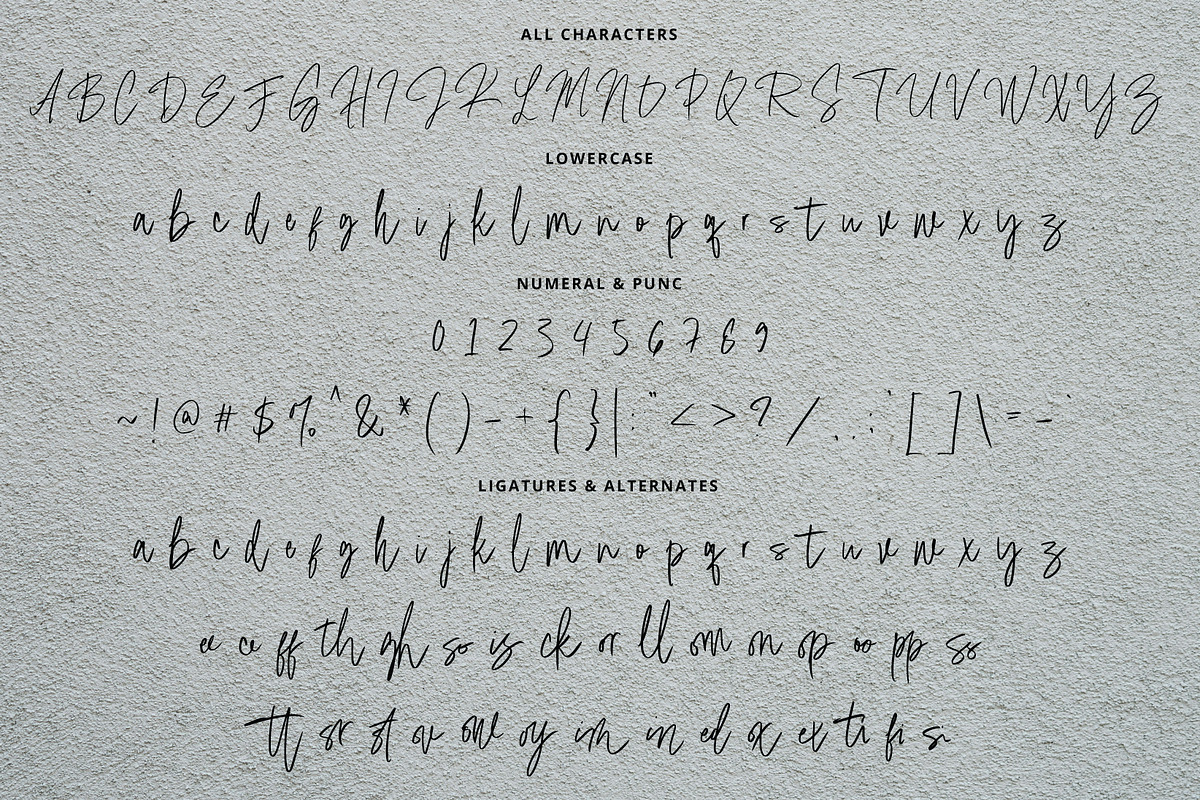 ALL CHARACTERS
A B C D E F G H I J K L M N O P Q R S T U V W X Y Z
LOWERCASE
a b c d e f g h i j k l m n o p q r s t u v w x y z
NUMERAL & PUNC
0 1 2 3 4 5 6 7 8 9
~ ! @ # $ % ^ & * ( ) - + { } | : " < > ? / . , ; ' [ ] \ = - `
LIGATURES & ALTERNATES
a b c d e f g h i j k l m n o p q r s t u v w x y z
ee ce ff th gh so is ck or ll om on op oo pp ss
tt sr st ov ow oy im in ed ox ex ti fi si